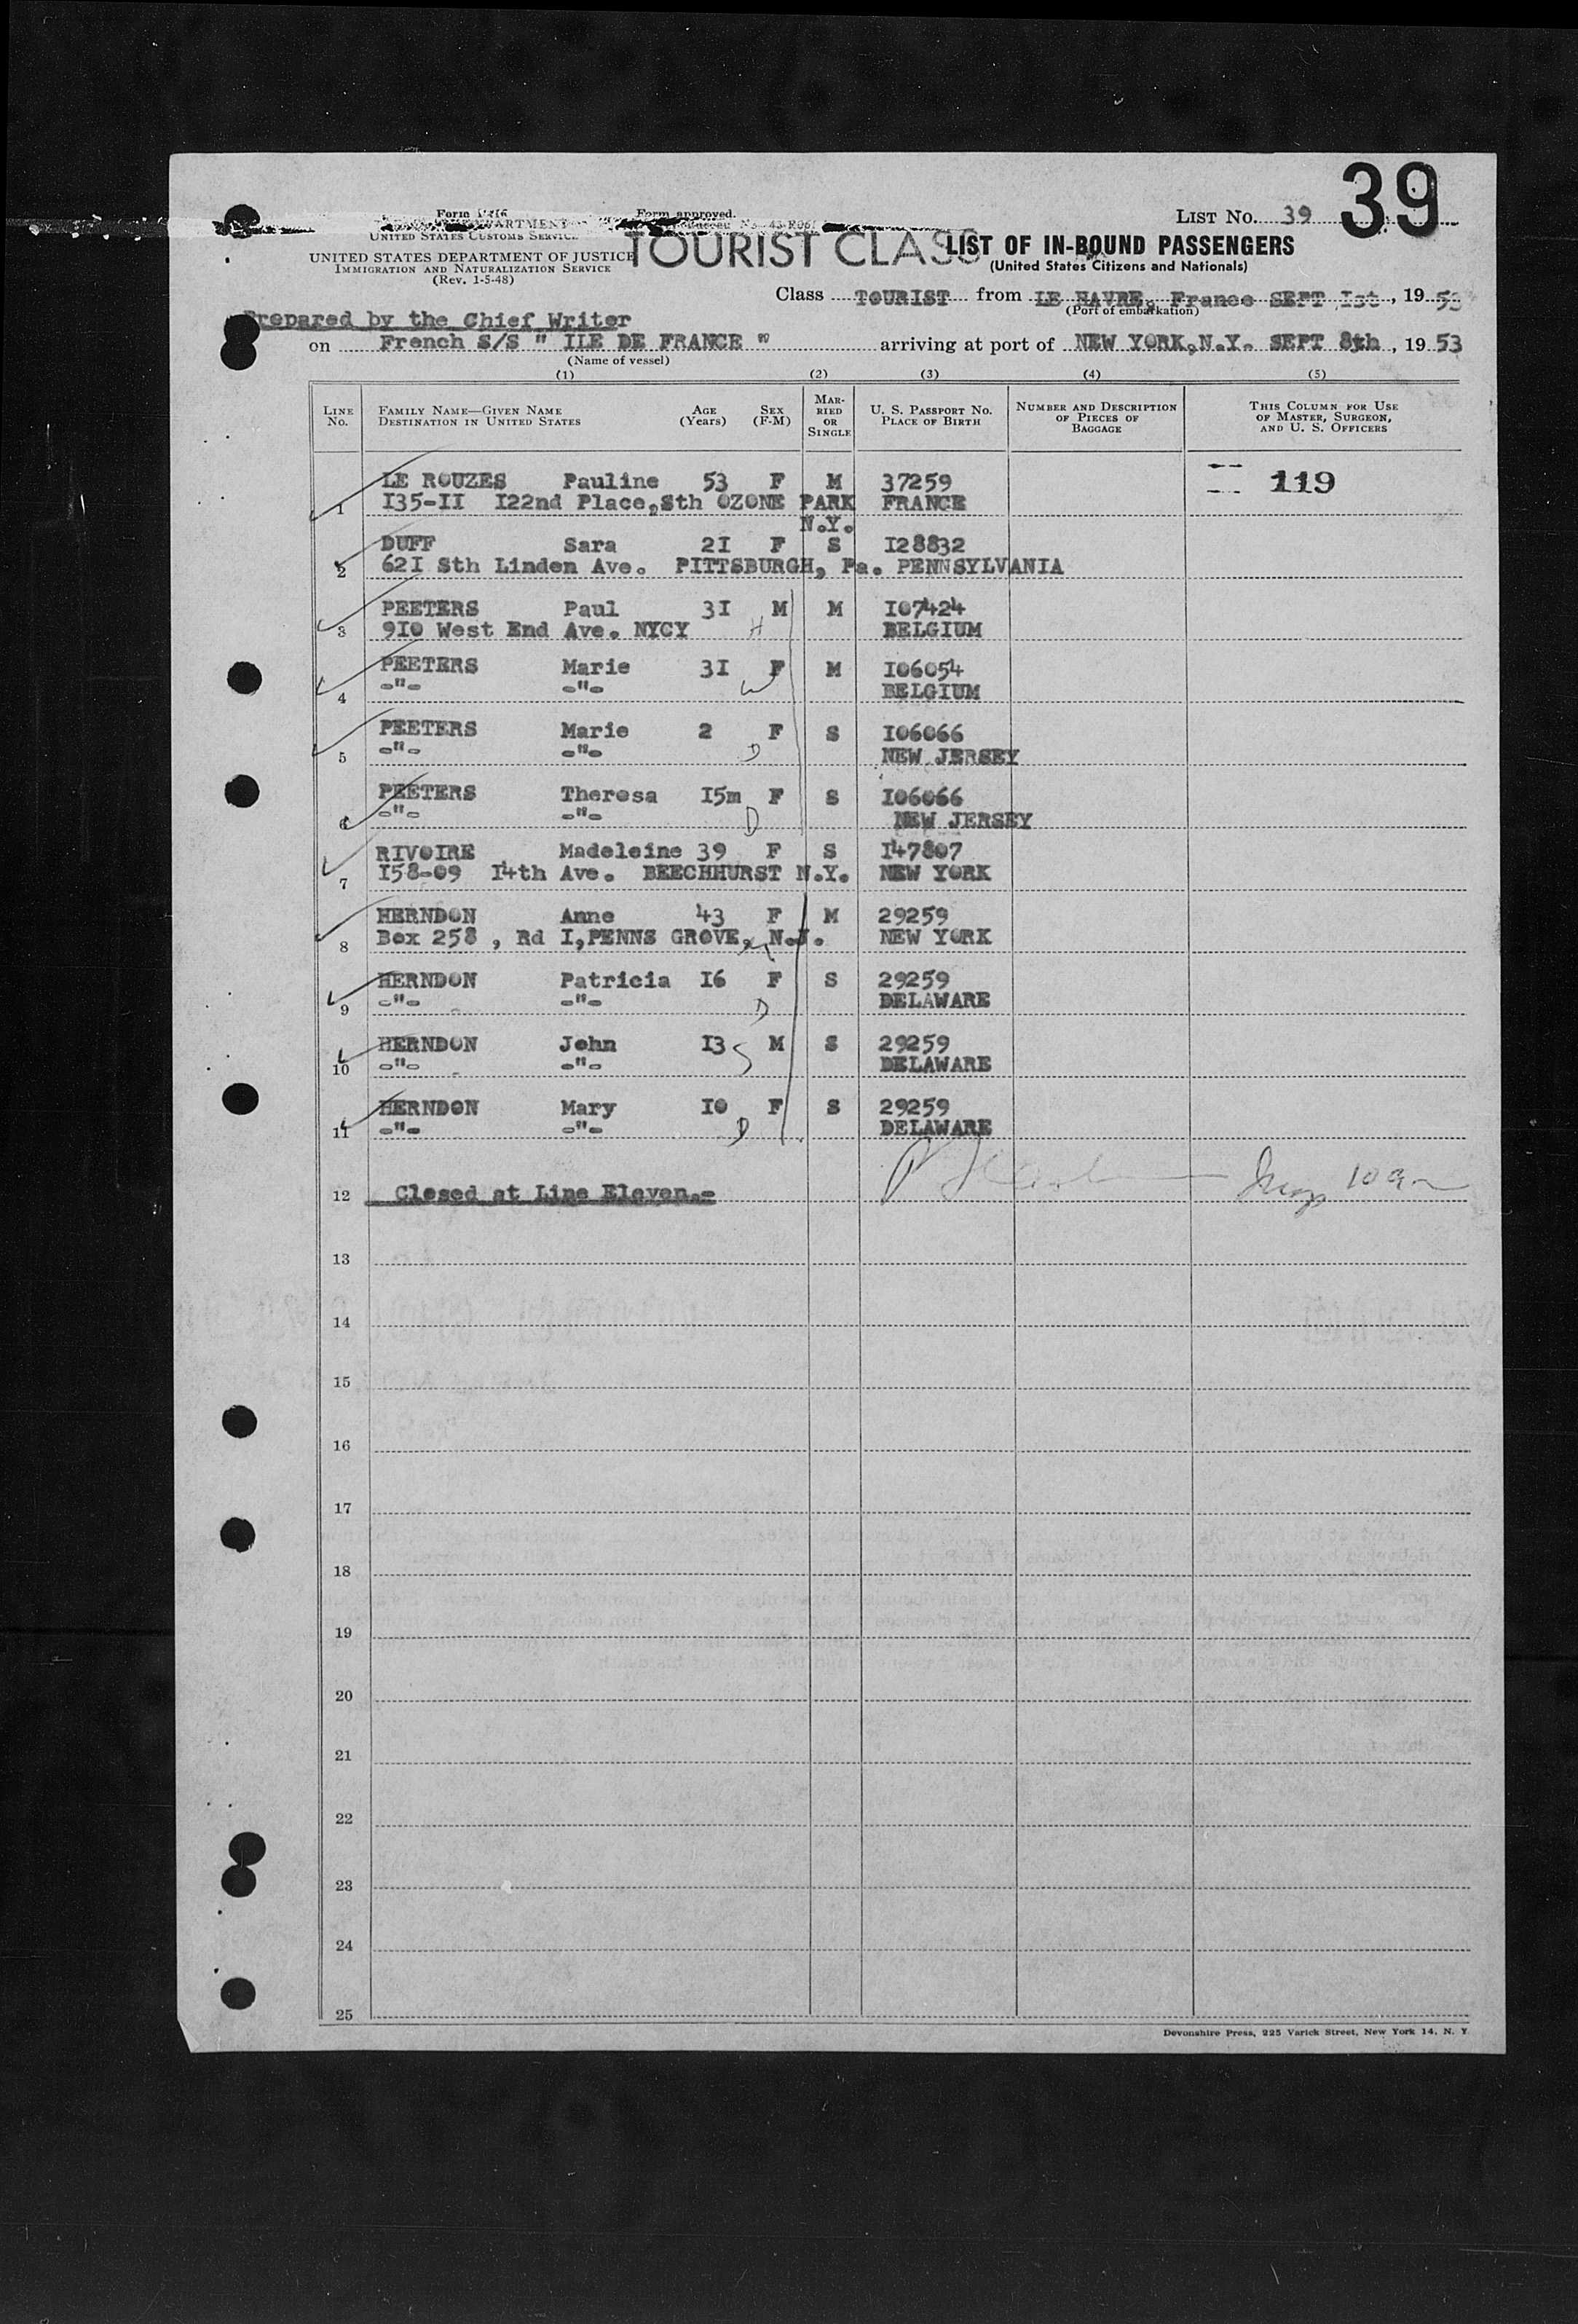 39
LIST NO. 39
Form approved.
UNITED STATES CUSTOMS SERVICE
TOURIST CLASS
LIST OF IN-BOUND PASSENGERS
UNITED STATES DEPARTMENT OF JUSTICE
IMMIGRATION AND NATURALIZATION SERVICE
(Rev. 1-5-48)
(United States Citizens and Nationals)
Class TOURIST from LE HAVRE, France SEPT Ist, 1953
(Port of embarkation)
Prepared by the Chief Writer
on French S/S " ILE DE FRANCE " arriving at port of NEW YORK,N.Y. SEPT 8th, 1953
(Name of vessel)
(1) (2) (3) (4) (5)
LINE NO. FAMILY NAME—GIVEN NAME DESTINATION IN UNITED STATES AGE (Years) SEX (F-M) MARRIED OR SINGLE U. S. PASSPORT NO. PLACE OF BIRTH NUMBER AND DESCRIPTION OF PIECES OF BAGGAGE THIS COLUMN FOR USE OF MASTER, SURGEON, AND U. S. OFFICERS
LE ROUZES Pauline 53 F M 37259 119
1 I35-II I22nd Place,Sth OZONE PARK FRANCE
N.Y.
DUFF Sara 2I F S I28832
2 62I Sth Linden Ave. PITTSBURGH, Pa. PENNSYLVANIA
PEETERS Paul 3I M M I07424
3 9I0 West End Ave. NYCY H BELGIUM
PEETERS Marie 3I F M I06054
4 -"- -"- W BELGIUM
PEETERS Marie 2 F S I06066
5 -"- -"- D NEW JERSEY
PEETERS Theresa I5m F S I06066
6 -"- -"- D NEW JERSEY
RIVOIRE Madeleine 39 F S I47807
7 I58-09 I4th Ave. BEECHHURST N.Y. NEW YORK
HERNDON Anne 43 F M 29259
8 Box 258 , Rd I,PENNS GROVE, N.J. NEW YORK
HERNDON Patricia I6 F S 29259
9 -"- -"- D DELAWARE
HERNDON John I3 S M S 29259
10 -"- -"- DELAWARE
HERNDON Mary I0 F S 29259
11 -"- -"- D DELAWARE
12 Closed at Line Eleven.-
13
14
15
16
17
18
19
20
21
22
23
24
25
Devonshire Press, 225 Varick Street, New York 14, N. Y.